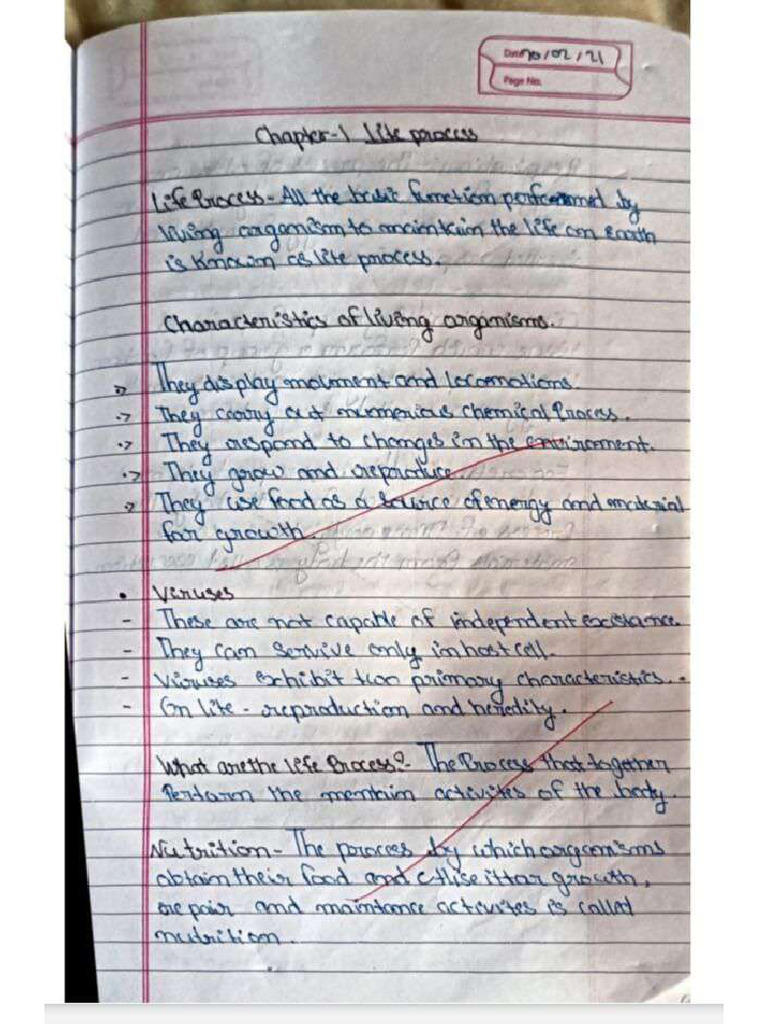 Date 20/02/21
Page No.
Chapter-1 Life process
Life Process - All the basic function performed by
living organism to maintain the life on Earth
is known as life process.
Characteristics of living organisms.
They display movment and locomotions.
They carry out numerious chemical Process.
They respond to changes in the envirement.
They grow and reproduce.
They use food as a source of energy and material
for growth.
• Viruses
- These are not capable of independent existance.
- They can servive only in host cell.
- Viruses exhibit two primary characteristics.
- On life - reproduction and heredity.
What are the life Process? - The Process that together
Perform the mentain activites of the body.
Nutrition - The process by which orgeonisms
obtain their food and utlise it for growth,
repair and maintance activites is called
nutrition.